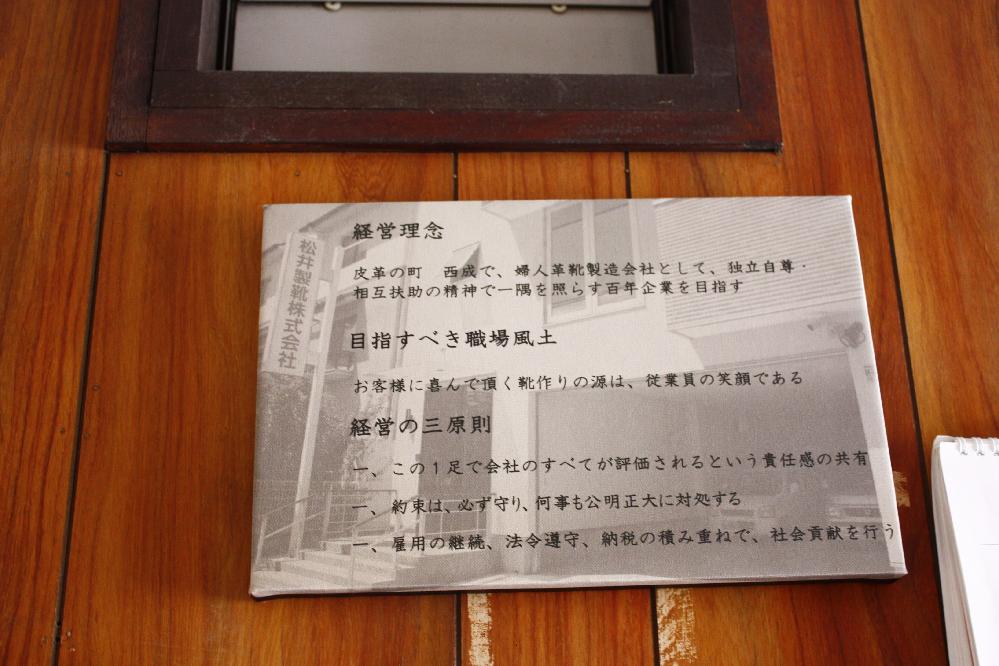 経営理念
皮革の町　西成で、婦人革靴製造会社として、独立自尊・
相互扶助の精神で一隅を照らす百年企業を目指す
目指すべき職場風土
お客様に喜んで頂く靴作りの源は、従業員の笑顔である
経営の三原則
一、この１足で会社のすべてが評価されるという責任感の共有
一、約束は、必ず守り、何事も公明正大に対処する
一、雇用の継続、法令遵守、納税の積み重ねで、社会貢献を行う
松井製靴株式会社